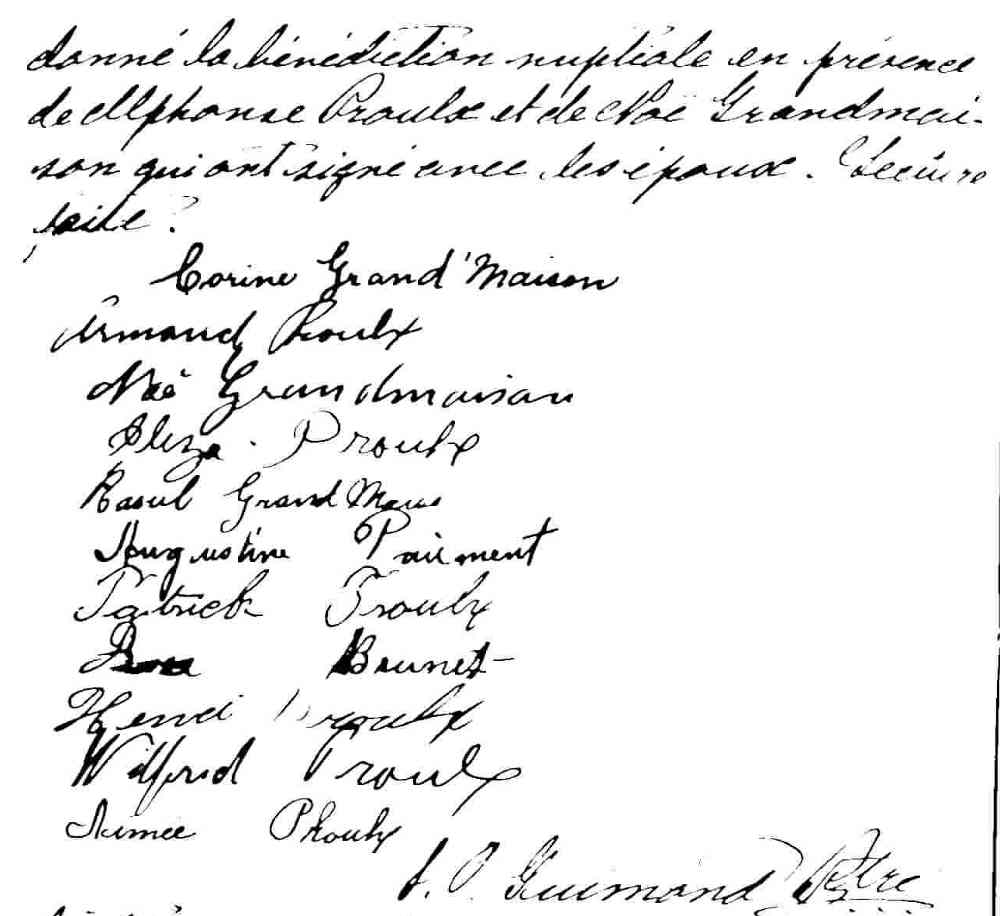 donné la bénédiction nuptiale en présence
de Alphonse Proulx et de Noé Grandmai-
son qui ont signé avec les époux. Lecture
faite.
Corine Grand'Maison
Armand Proulx
Noé Grandmaison
Eliza. Proulx
Raoul Grand
Augustine Pairment
Patrick Proulx
Brunet
Henri Proulx
Wilfrid Proulx
Aimée Proulx
Guimond Ptre